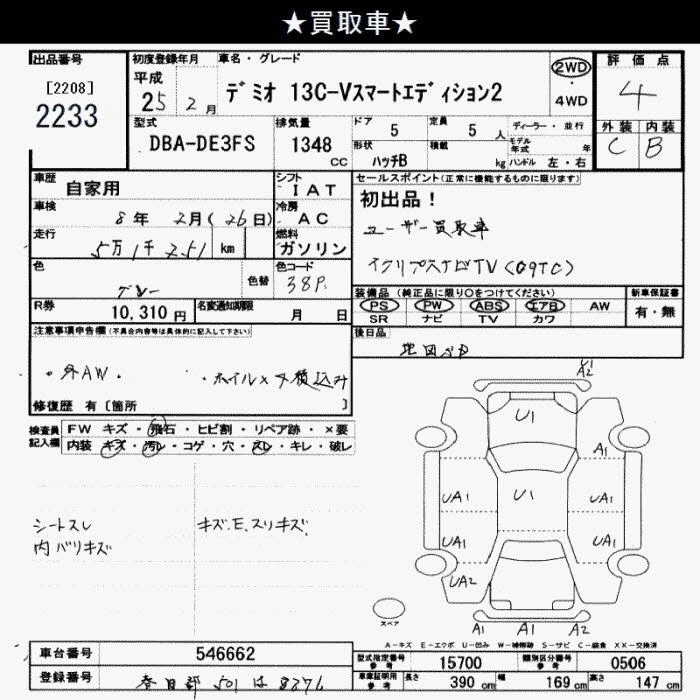 ★買取車★
出品番号
[2208]
2233
初度登録年月 車名・グレード
平成
25 2月
デミオ 13C-Vスマートエディション2
2WD
・
4WD
評価点
4
外装 内装
C B
型式
DBA-DE3FS
排気量
1348
CC
ドア 5
定員 5 人
ディーラー・並行
モデル年式 年
形状 ハッチB
積載 kg
ハンドル 左・右
車歴 自家用
シフト IAT
車検 8年 2月(26日)
冷房 AC
走行 5万1千251 km
燃料 ガソリン
色 グレー
色替
色コード 38P
R券 10,310円
名変通知期限 月 日
セールスポイント(正常に機能するものに限ります)
初出品!
ユーザー買取車
イクリプスナビTV(09TC)
装備品(純正品に限り○をつけてください)
PS PW ABS エアB AW
SR ナビ TV カワ
新車保証書
有・無
後日品
注意事項申告欄(不具合内容等は具体的に記入して下さい)
・外AW. ・ホイル×4積込み
修復歴 有〔箇所 〕
検査員記入欄
FW キズ・飛石・ヒビ割・リペア跡・×要
内装 キズ・汚レ・コゲ・穴・スレ・キレ・破レ
シートスレ
内バリキズ
キズ.E.スリキズ
A2
U1
A1
UA1 U1 UA1
UA1 UA1
UA2
スペア
A1 A1 A2
A−キズ E−エクボ U−凹み W−補修跡 S−サビ C−腐食 XX−交換済
車台番号 546662
登録番号 春日部 501 は 8376
型式指定番号 参考 15700
類別区分番号 参考 0506
車庫証明用 参考
長さ 390 cm
幅 169 cm
高さ 147 cm